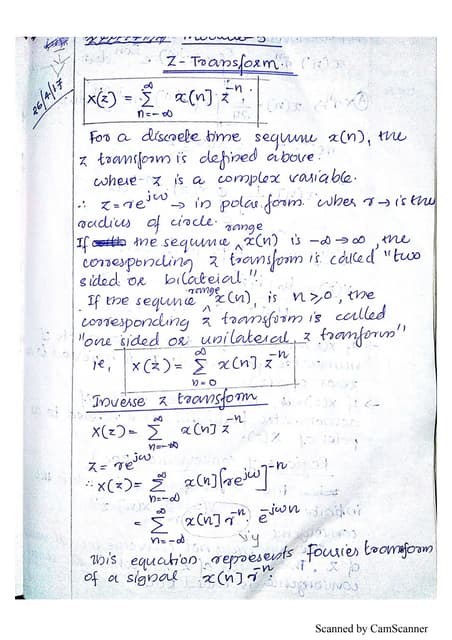 Module-5
26/4/17
Z-Transform.
X(z) = ∑_{n=-∞}^{∞} x[n] z^{-n}.
For a discrete time sequence x(n), the
z transform is defined above.
where z is a complex variable.
∴ z = re^{jω} → in polar form. wher r → is the
radius of circle.
If the sequence range x(n) is -∞ → ∞, the
corresponding z transform is called "two
sided or bilateral".
If the sequence range x(n), is n ≥ 0, the
corresponding z transform is called
"one sided or unilateral z tranform"
ie, X(z) = ∑_{n=0}^{∞} x[n] z^{-n}
Inverse z transform
X(z) = ∑_{n=-∞}^{∞} x[n] z^{-n}
z = re^{jω}
∴ X(z) = ∑_{n=-∞}^{∞} x[n] [re^{jω}]^{-n}
= ∑_{n=-∞}^{∞} x[n] r^{-n} . e^{-jωn}
This equation represents Fourier transform
of a signal x[n] r^{-n}.
Scanned by CamScanner